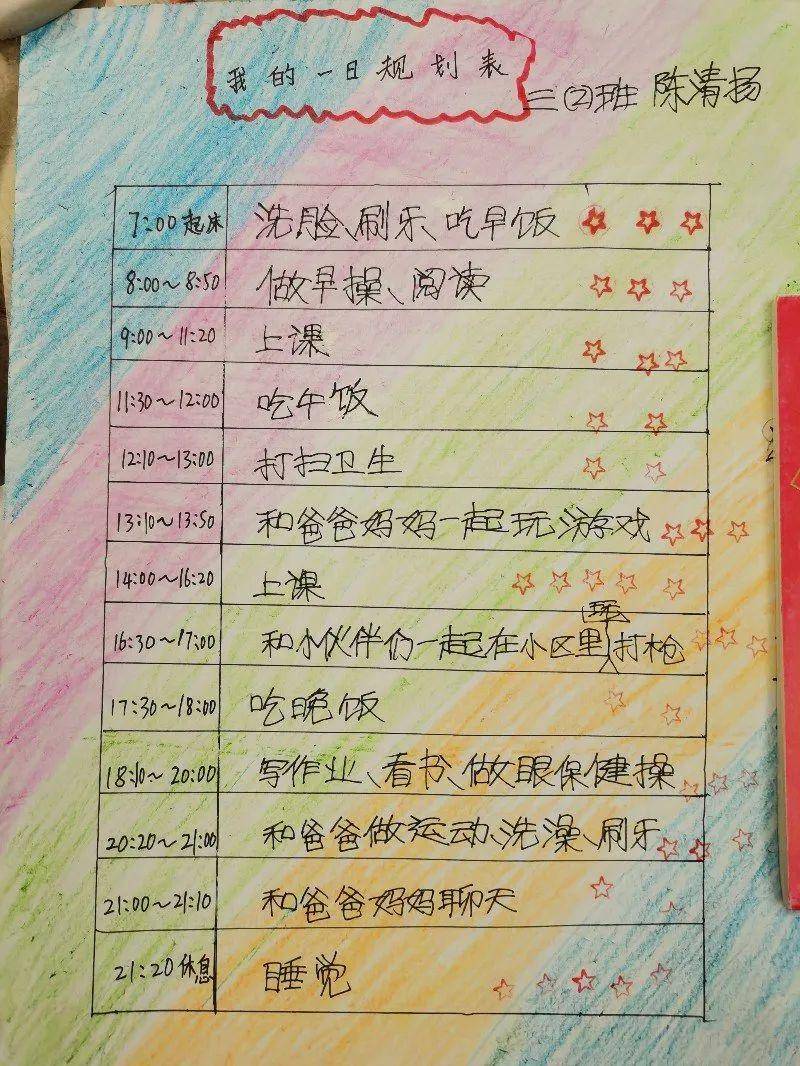 我的一日规划表
三(2)班 陈清扬
7:00起床 洗脸、刷乐、吃早饭
8:00~8:50 做早操、阅读
9:00~11:20 上课
11:30~12:00 吃午饭
12:10~13:00 打扫卫生
13:10~13:50 和爸爸妈妈一起玩游戏
14:00~16:20 上课
16:30~17:00 和小伙伴们一起在小区里玩打枪
17:30~18:00 吃晚饭
18:10~20:00 写作业、看书、做眼保健操
20:20~21:00 和爸爸做运动、洗澡、刷乐
21:00~21:10 和爸爸妈妈聊天
21:20休息 睡觉